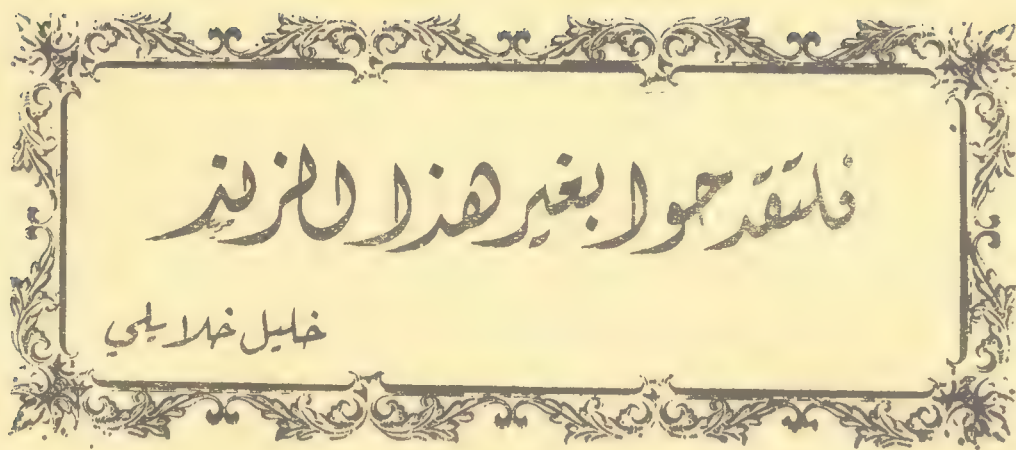 فلتقدحوا بغير هذا الزند
خليل خلايلي